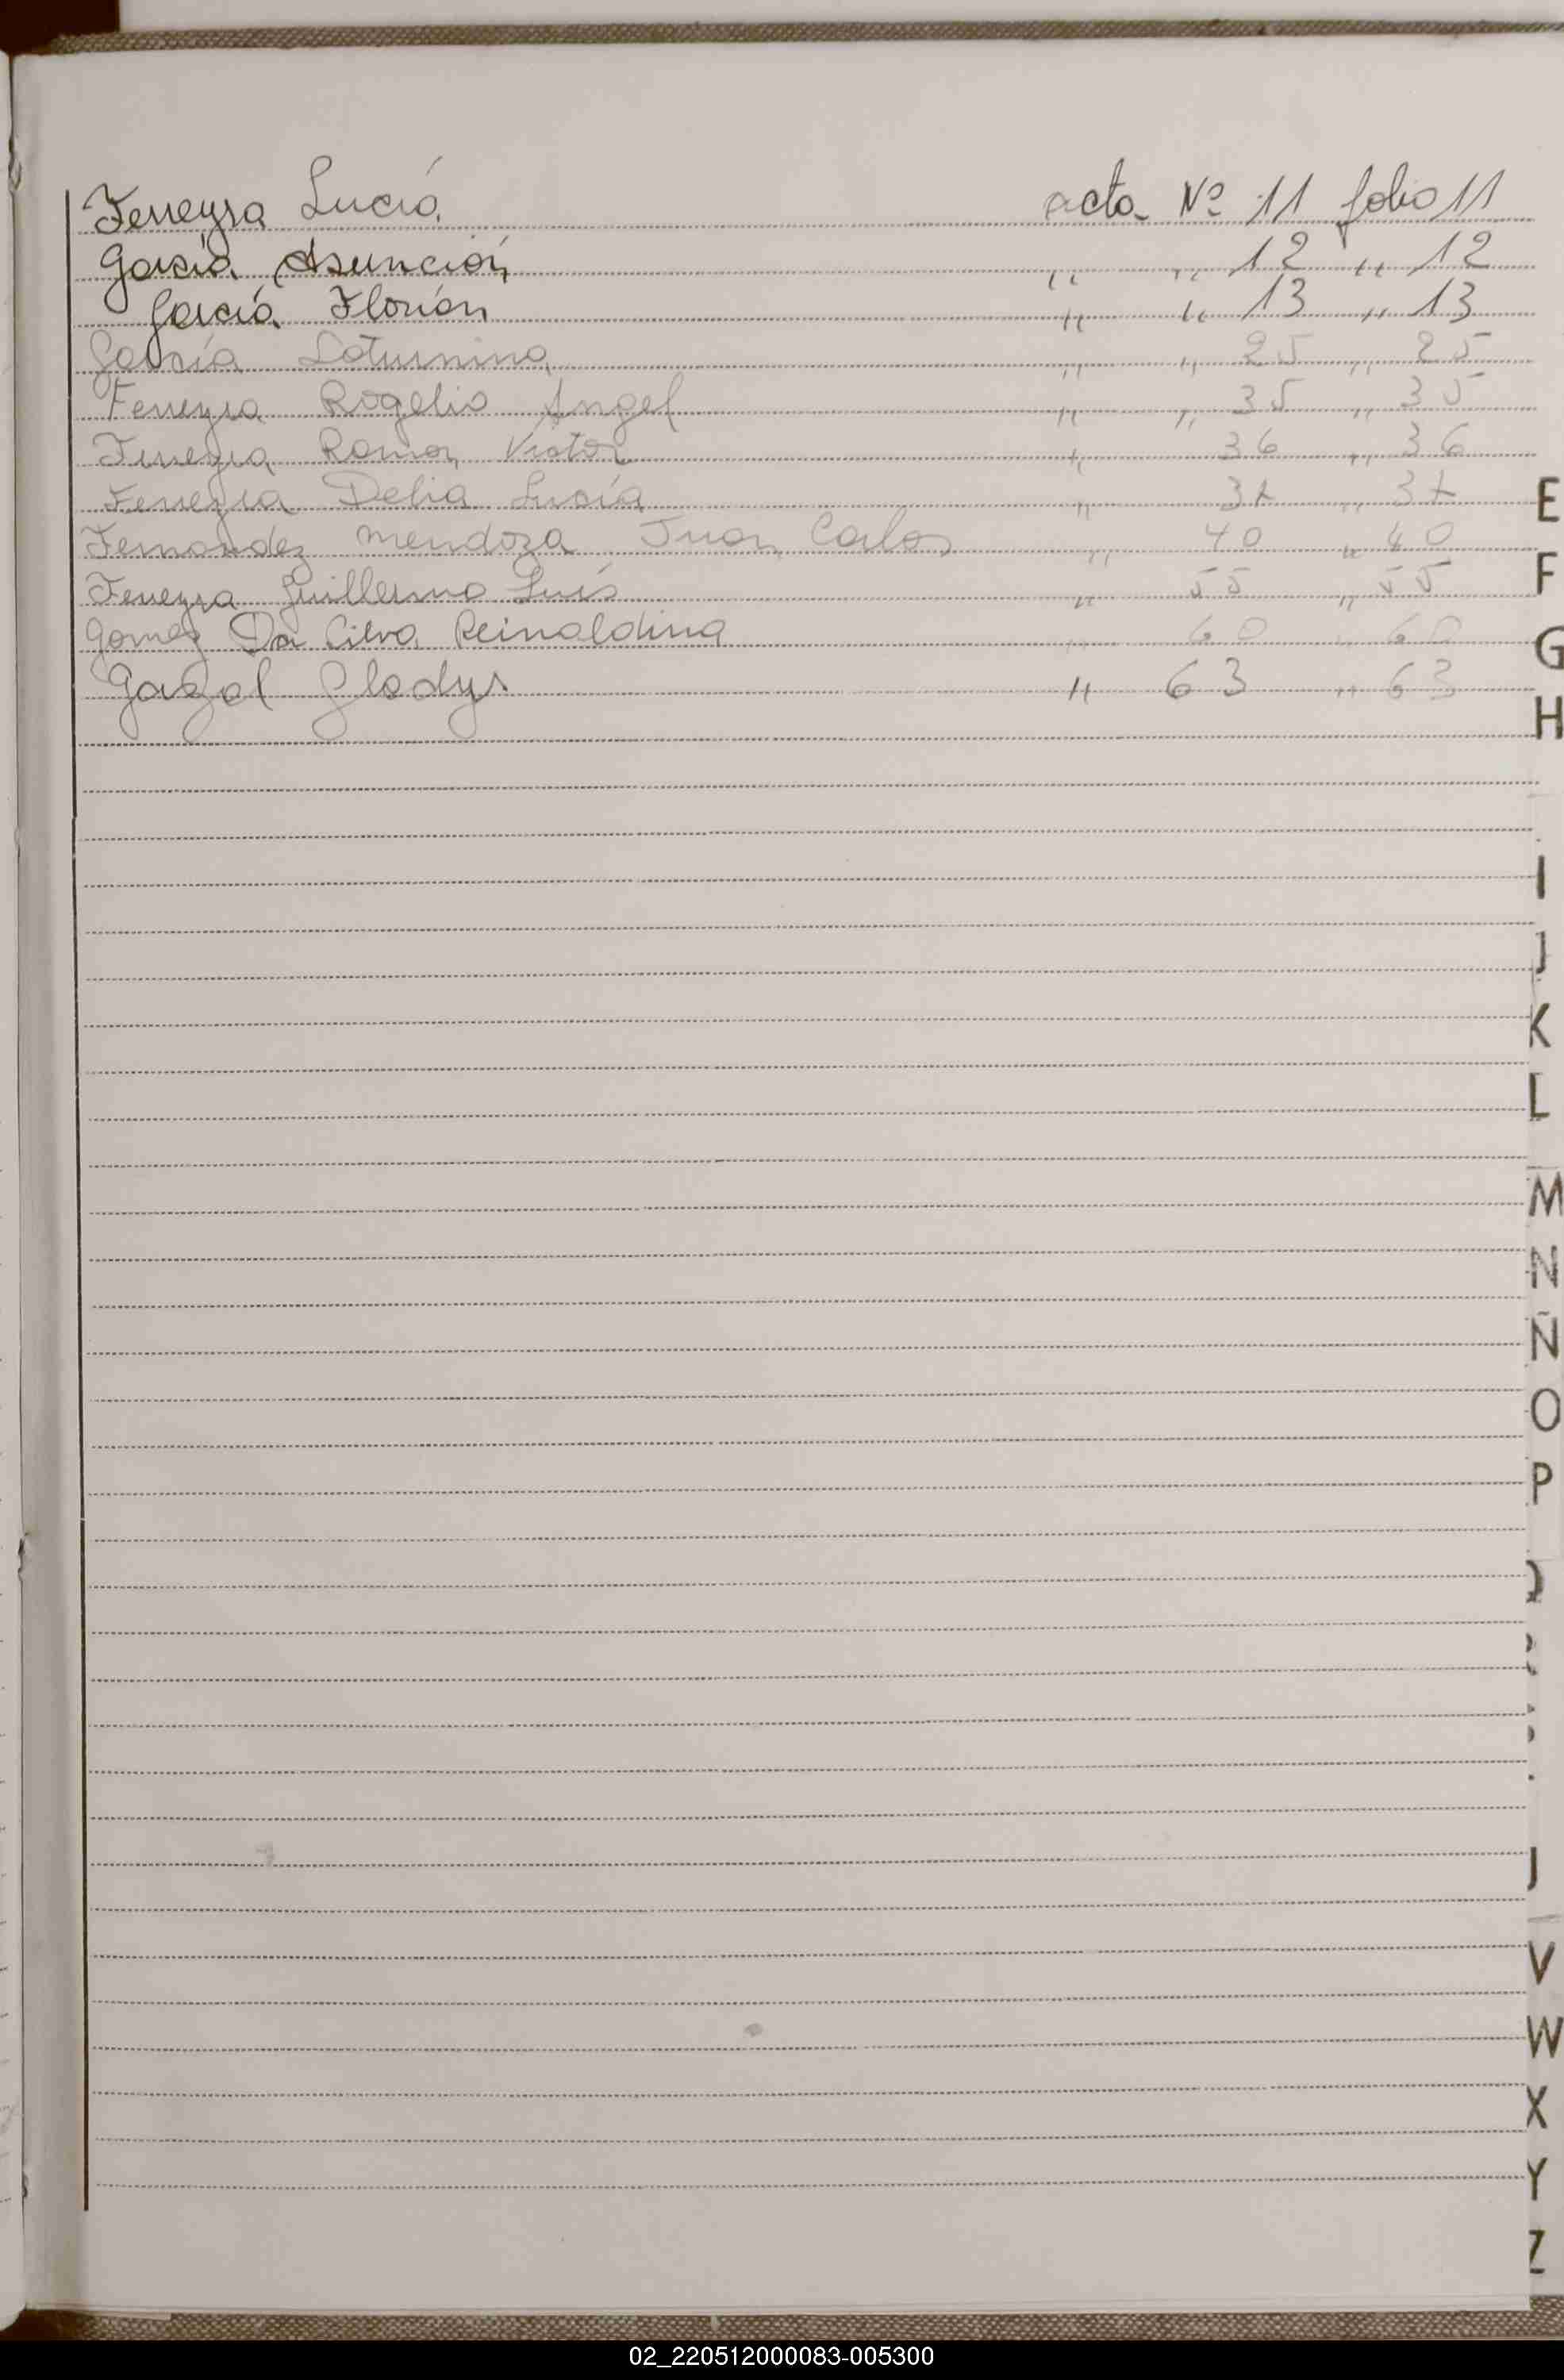 Ferreyra Lucía acta Nº 11 folio 11
García Asunción ,, ,, 12 ,, 12
García Florión ,, ,, 13 ,, 13
García Saturnina ,, ,, 25 ,, 25
Ferreyra Rogelio Angel ,, ,, 35 ,, 35
Ferreyra Ramon Victor ,, 36 ,, 36
Ferreyra Delia Lucía ,, 37 ,, 37
Fernandez Mendoza Juan Carlos ,, 40 ,, 40
Ferreyra Guillermo Luís ,, 55 ,, 55
Gomez Da Silva Reinaldina ,, 60 ,, 60
Gladys ,, 63 ,, 63
E
F
G
H
I
J
K
L
M
N
Ñ
O
P
V
W
X
Y
Z
02_220512000083-005300